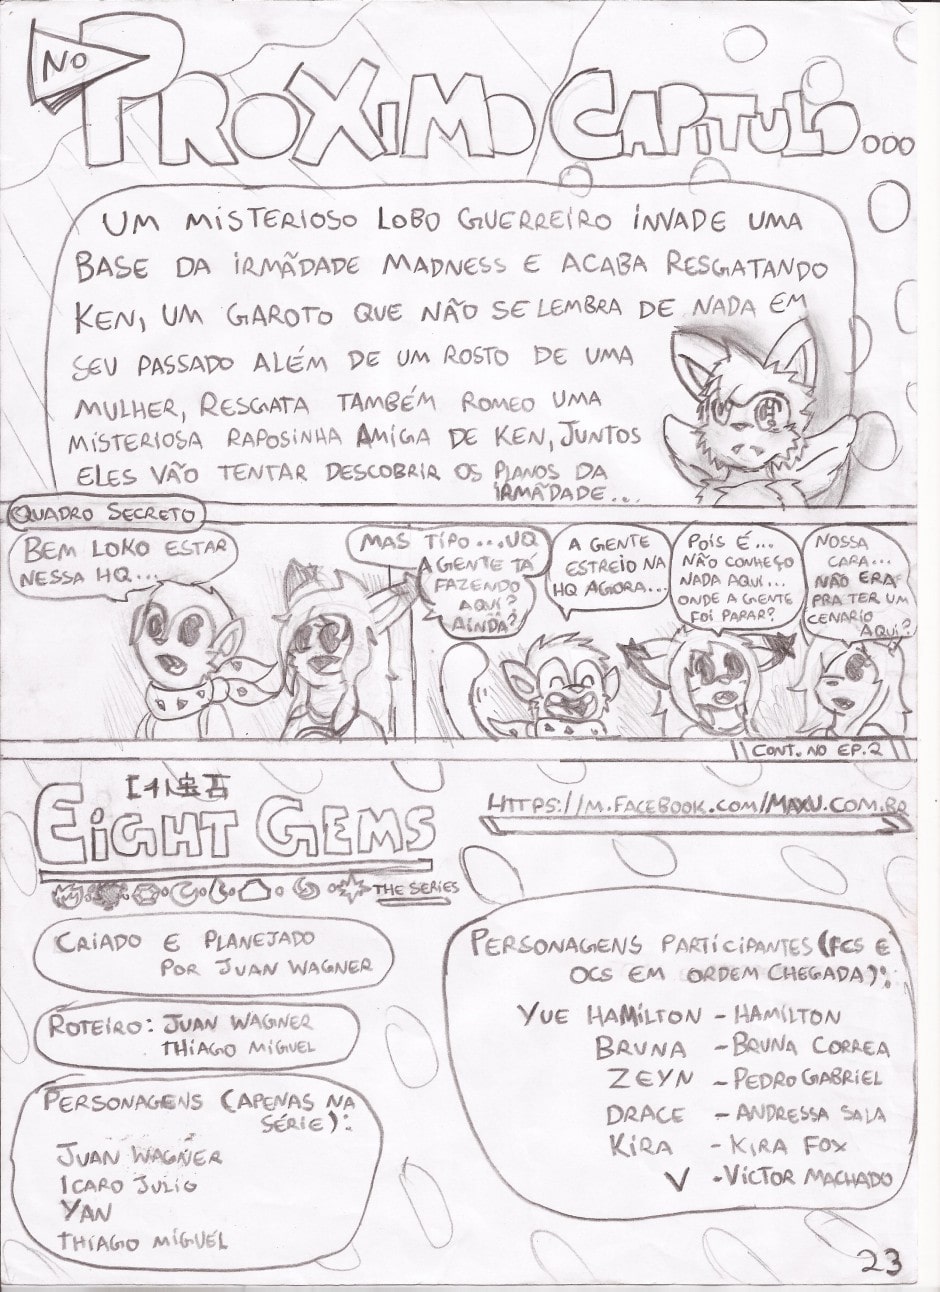 NO
PROXIMO CAPITULO...
UM MISTERIOSO LOBO GUERREIRO INVADE UMA
BASE DA IRMÃDADE MADNESS E ACABA RESGATANDO
KEN, UM GAROTO QUE NÃO SE LEMBRA DE NADA EM
SEU PASSADO ALÉM DE UM ROSTO DE UMA
MULHER, RESGATA TAMBÉM ROMEO UMA
MISTERIOSA RAPOSINHA AMIGA DE KEN, JUNTOS
ELES VÃO TENTAR DESCOBRIR OS PLANOS DA
IRMÃDADE...
QUADRO SECRETO
BEM LOKO ESTAR
NESSA HQ...
MAS TIPO...UQ
A GENTE TÁ
FAZENDO
AQUI?
AINDA?
A GENTE
ESTREIO NA
HQ AGORA...
POIS É...
NÃO CONHEÇO
NADA AQUI...
ONDE A GENTE
FOI PARAR?
NOSSA
CARA...
NÃO ERA
PRA TER UM
CENARIO
AQUI?
CONT. NO EP.2
EIGHT GEMS
THE SERIES
HTTPS://M.FACEBOOK.COM/MAXU.COM.BR
CRIADO E PLANEJADO
POR JUAN WAGNER
ROTEIRO: JUAN WAGNER
THIAGO MIGUEL
PERSONAGENS (APENAS NA
SÉRIE):
JUAN WAGNER
ICARO JULIO
YAN
THIAGO MIGUEL
PERSONAGENS PARTICIPANTES (FCS E
OCS EM ORDEM CHEGADA):
YUE HAMILTON - HAMILTON
BRUNA - BRUNA CORREA
ZEYN - PEDRO GABRIEL
DRACE - ANDRESSA SALA
KIRA - KIRA FOX
V - VICTOR MACHADO
23